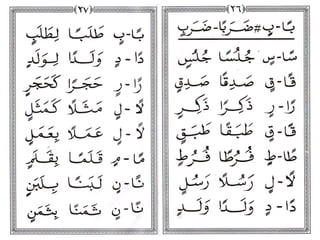 (٢٦)
بًا - بٍ # ضَرَبًا - ضَرَبٍ
سًا - سٍ جُلُسًا جُلُسٍ
قًا - قٍ صَدِقًا صَدِقٍ
رًا - رٍ ذَكِرًا ذَكِرٍ
قًا - قٍ طَبَقًا طَبَقٍ
طًا - طٍ فُرُطًا فُرُطٍ
لًا - لٍ رَسُلًا رَسُلٍ
دًا - دٍ وَلَدًا وَلَدٍ
(٢٧)
بًا - بٍ طَلَبًا لِطَلَبٍ
دًا - دٍ وَلَدًا لِوَلَدٍ
رًا - رٍ حَجَرًا كَحَجَرٍ
لًا - لٍ مَثَلًا كَمَثَلٍ
لًا - لٍ عَمَلًا بِعَمَلٍ
مًا - مٍ قَلَمًا بِقَلَمٍ
نًا - نٍ لَبَنًا بِلَبَنٍ
نًا - نٍ ثَمَنًا بِثَمَنٍ